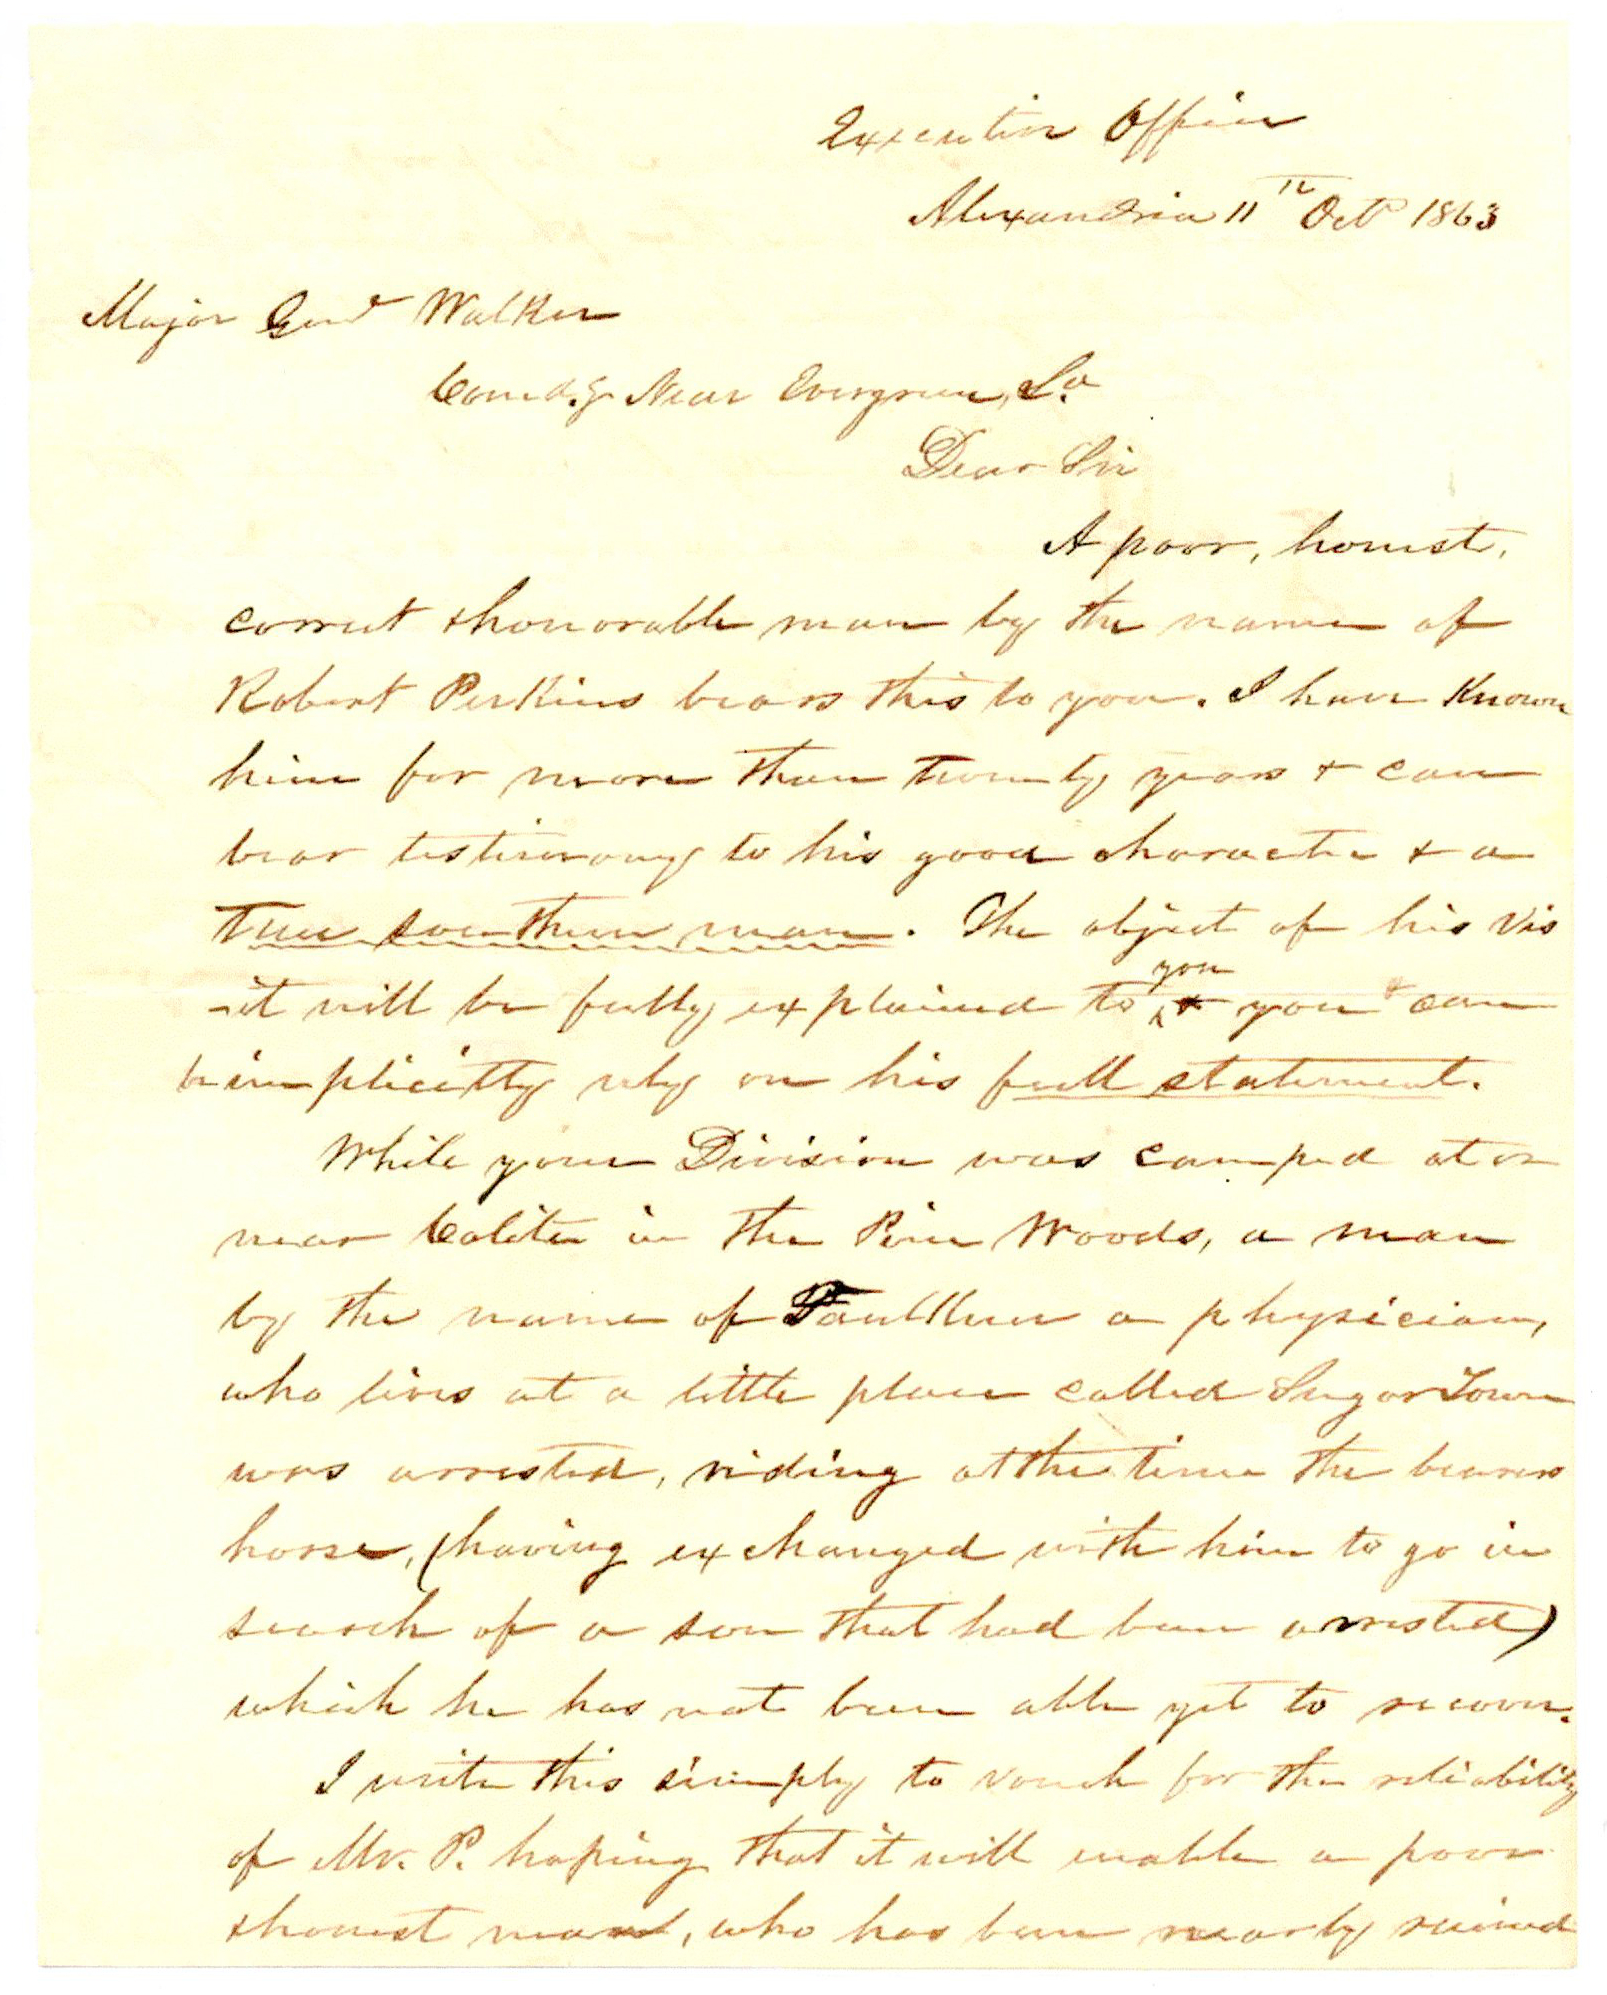 Executive Office
Alexandria 11th Octo 1863
Major Genl Walker
Comdg Near Evergreen, La.
Dear Sir
A poor, honest,
correct & honorable man by the name of
Robert Perkins bears this to you. I have Known
him for more than twenty years & can
bear testimony to his good character & a
true southern man. The object of his vis
-it will be fully explained to you & you can
implicitly rely on his full statement.
While your Division was camped at or
near Calite in the Pine Woods, a man
by the name of Faulkner a physician,
who lives at a little place called Sugar Town
was arrested, riding at the time the bearers
horse, (having exchanged with him to go in
search of a son that had been arrested)
which he has not been able yet to recover.
I write this simply to vouch for the reliability
of Mr. P. hoping that it will enable a poor
& honest man, who has been nearly ruined